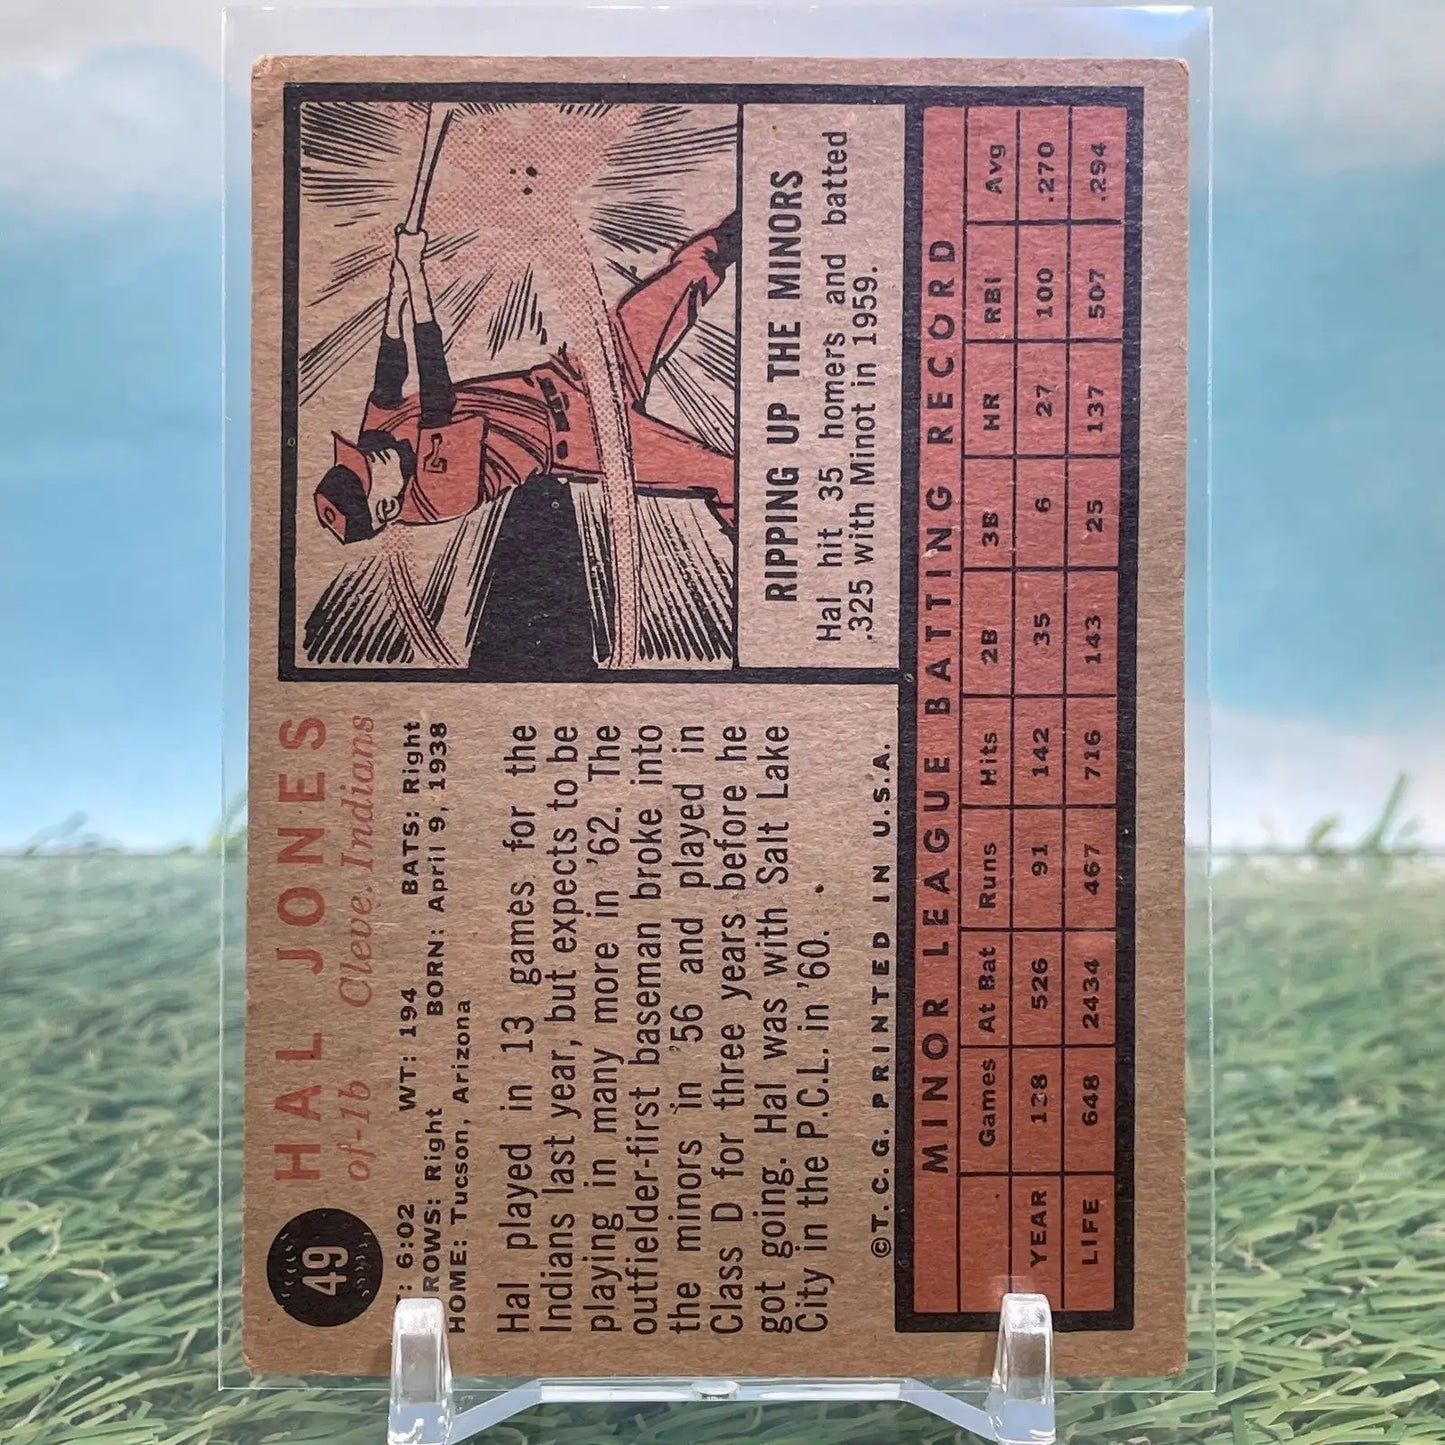 49
HAL JONES
of-1b Cleve. Indians
T: 6:02 WT: 194 BATS: Right
ROWS: Right BORN: April 9, 1938
HOME: Tucson, Arizona
Hal played in 13 games for the
Indians last year, but expects to be
playing in many more in '62. The
outfielder-first baseman broke into
the minors in '56 and played in
Class D for three years before he
got going. Hal was with Salt Lake
City in the P.C.L. in '60.
©T. C. G. PRINTED IN U.S.A.
RIPPING UP THE MINORS
Hal hit 35 homers and batted
.325 with Minot in 1959.
MINOR LEAGUE BATTING RECORD
Games At Bat Runs Hits 2B 3B HR RBI Avg
YEAR 128 526 91 142 35 6 27 100 .270
LIFE 648 2434 467 716 143 25 137 507 .294